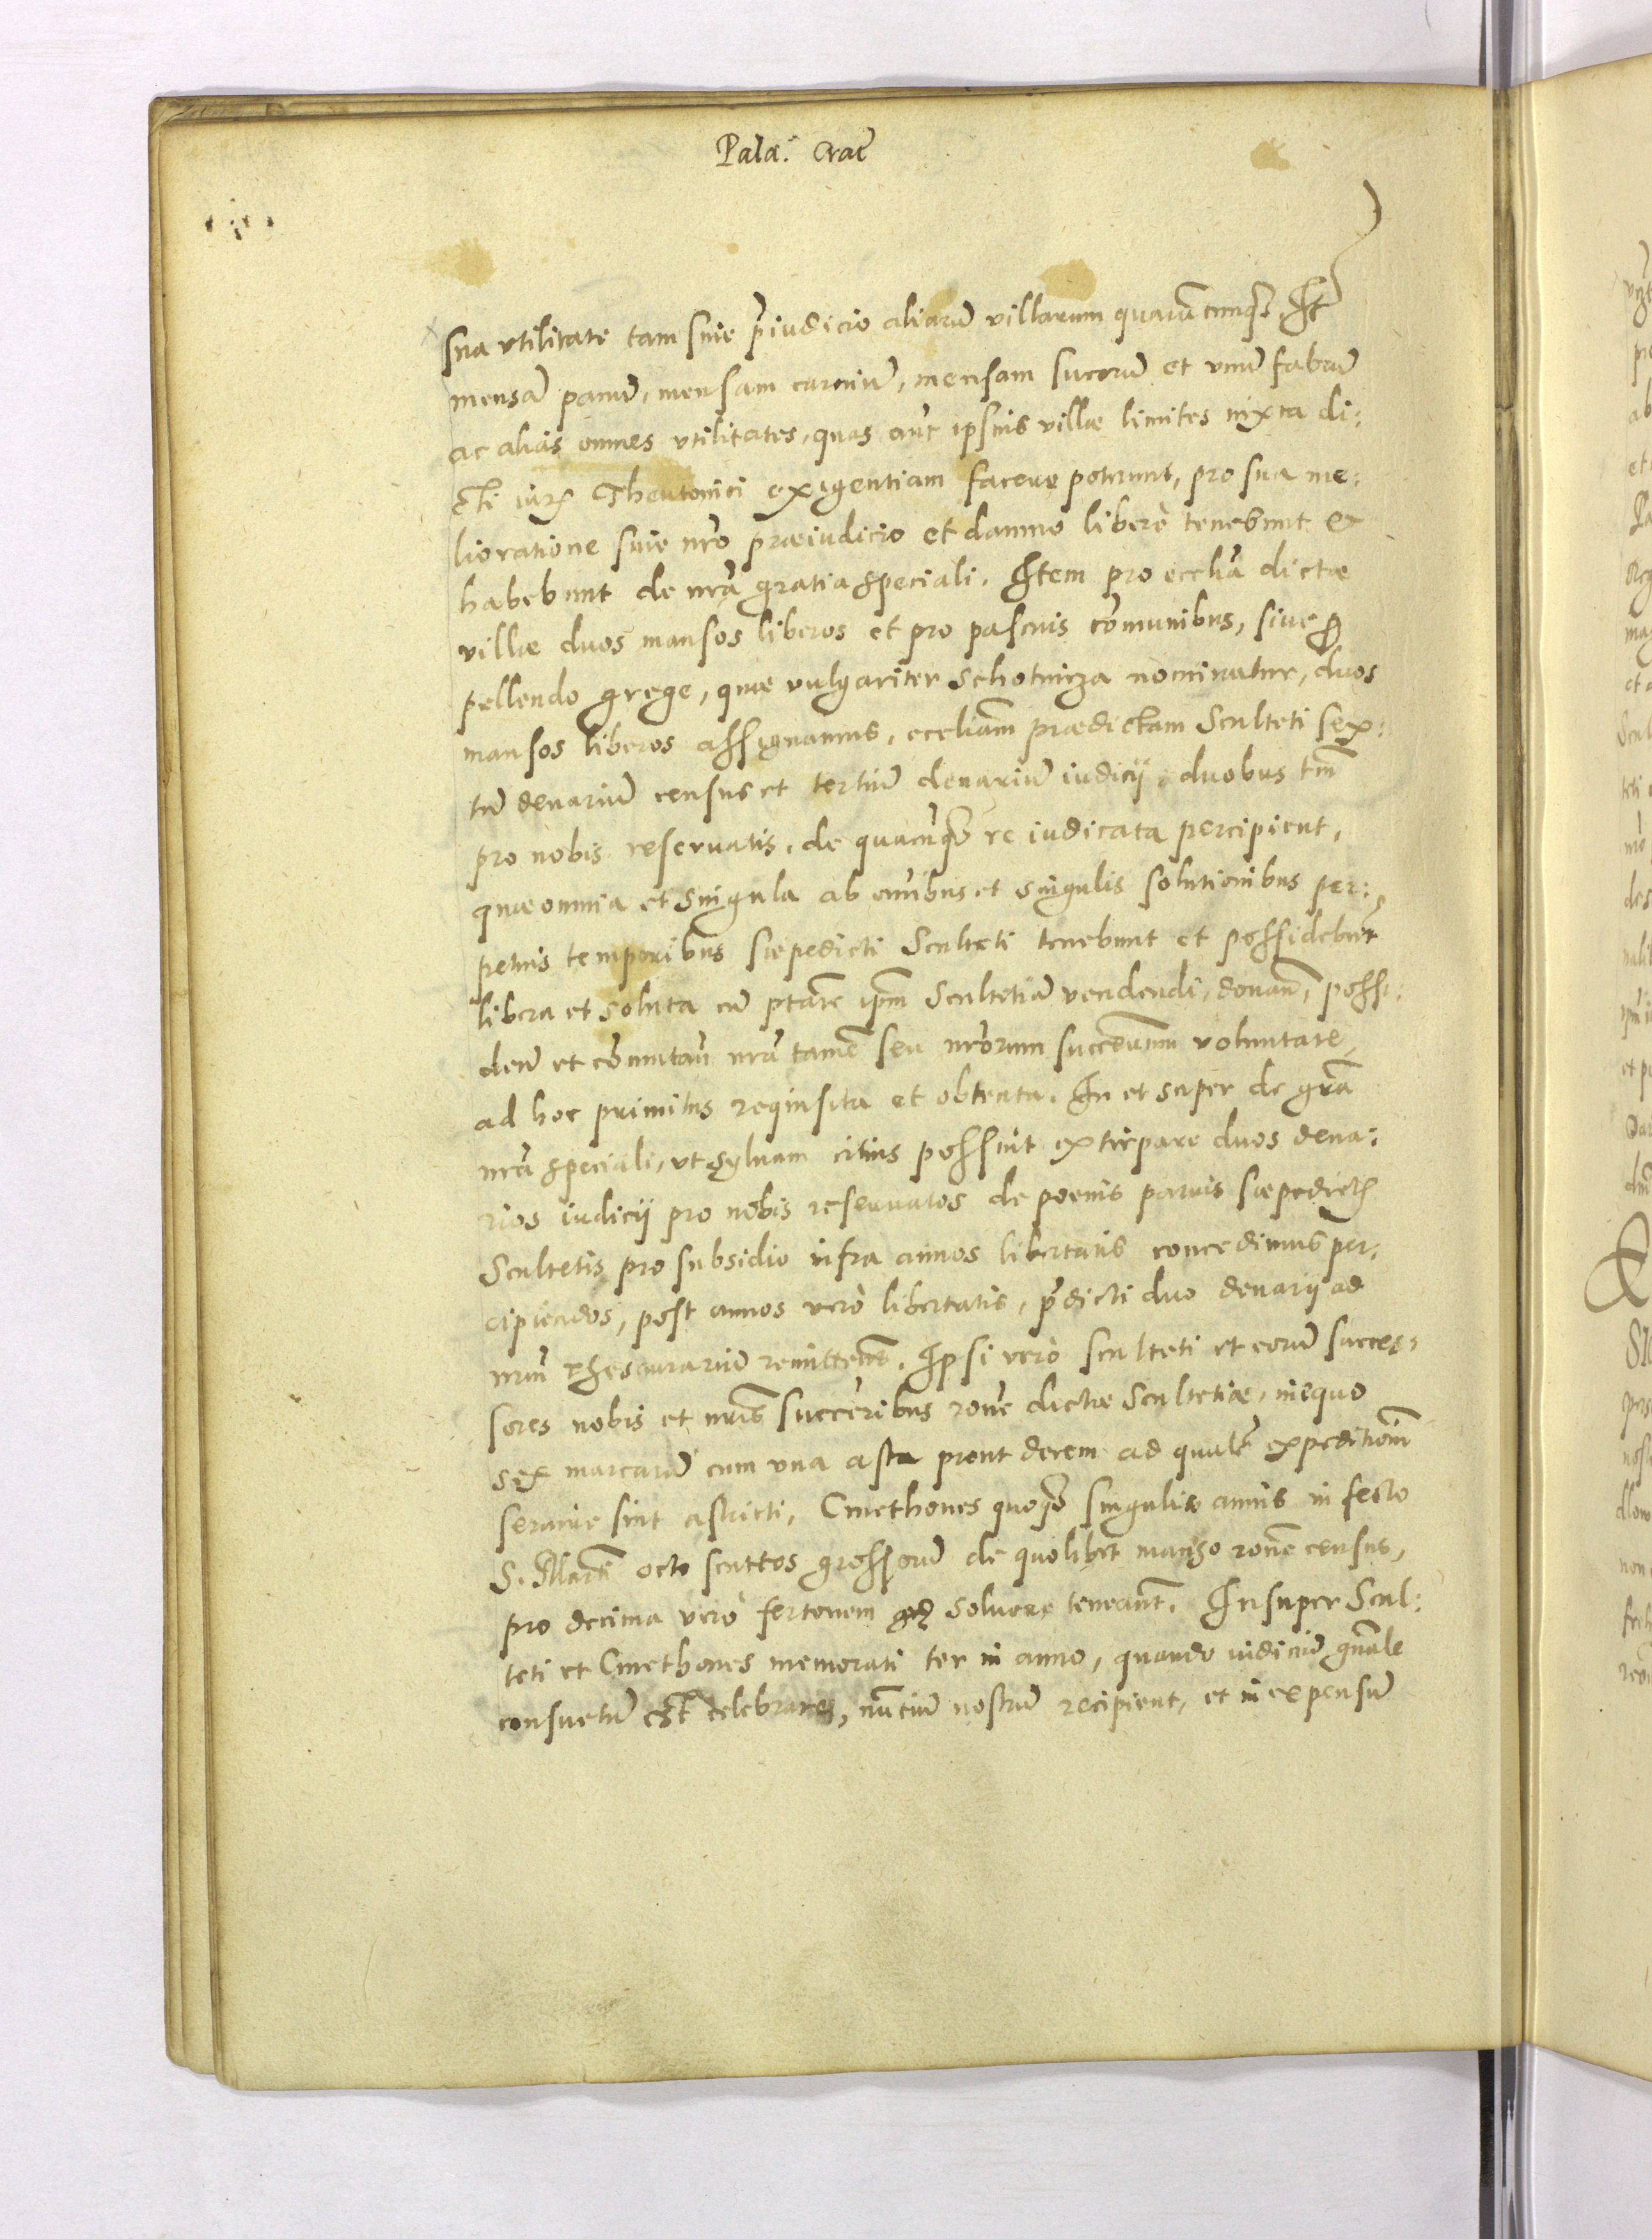 Pala: Crac̄
sua vtilitate tam sine p̄iudicio aliarū villarum quarūcunqꝫ. Itē
mensā panū, mensam carniū, mensam sutorū et vnū fabrū
ac alias omnes vtilitates, quas aūt ipsius villæ limites iuxta di:
cti iurꝭ Theutonici exigentiam facere poterunt, pro sua me:
lioratione sine nr̄o præiudicio et damno liberè tenebunt &
habebunt de nr̄a gratia speciali. Item pro eccl̄ia dictæ
villæ duos mansos liberos et pro pascuis com̄unibus, siue ꝓ
pellendo grege, quæ vulgariter Schotnicza nominatur, duos
mansos liberos assignamus, eccl̄iam prædictam Sculteti sex:
tū denariū census et tertiū denariū iudicij, duobus tm̄
pro nobis reseruatis, de quacūqꝫ re iudicata percipient,
quæ omnia et singula ab om̄ibus et singulis solutionibus per:
petuis temporibus sæpedicti Sculteti tenebunt et possidebūt
libera et soluta cū ptāte ip̄m Scultetiā vendendi, donan̄, possi:
den̄ et com̄utan̄ nr̄a tamē seu nr̄orum succēorum voluntate,
ad hoc primitus requisita et obtenta. In et super de gr̄a
nr̄a speciali, vt syluam citius possint extirpare duos dena:
rios iudicij pro nobis reseruatos de poenis paruis sæpedictꝭ
Scultetis pro subsidio infra annos libertatis concedimus per:
cipiendos, post annos verò libertatis, p̄dicti duo denarij ad
nr̄um thesaurariū remittent̄. Ipsi verò sculteti et eorū succes:
sores nobis et nr̄is succēribus rōne dictæ Scultetiæ, in equo
sex marcarū cum vna asta prout decem ad qualēt expeditionē
seruire sint astricti, Cmethones quoqꝫ singulis annis in festo
S. Martī octo scottos grossorū de quolibet manso rōne census,
pro decima verò fertonem solvere teneant̄. Insuper Scul:
teti et Cmethones memorati ter in anno, quando iudiciū gn̄ale
consuetū est celebrare, nūciū nostrū recipient, et in expensū